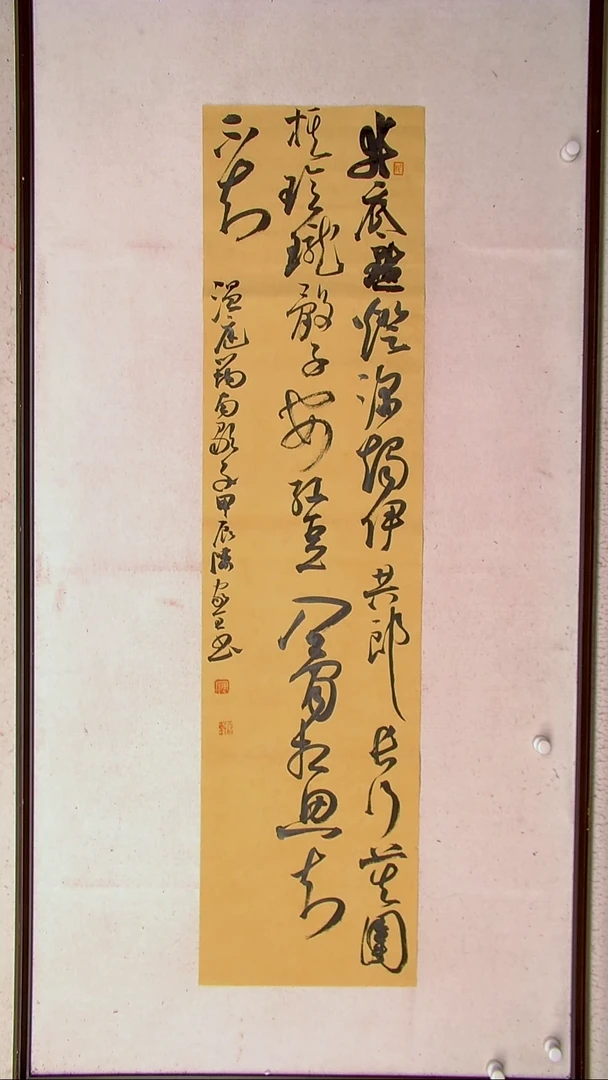 井底點燈深燭伊共郎長行莫圍
棋玲瓏骰子安紅豆入骨相思知
不知
温庭筠南歌子甲辰陳家書